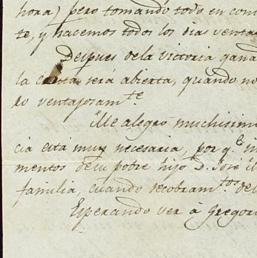 hora) pero tomando todo en con
te, y hacemos todos los dias venta
Despues dela victoria gana
la será abierta, quando no
lo ventajosam.te
Me alegro muchisimo
cia esta muy necesaria, por q.e
mentos de su pobre hijo D. José
familia, cuando recobram.tos de
Esperando ver à Gregori